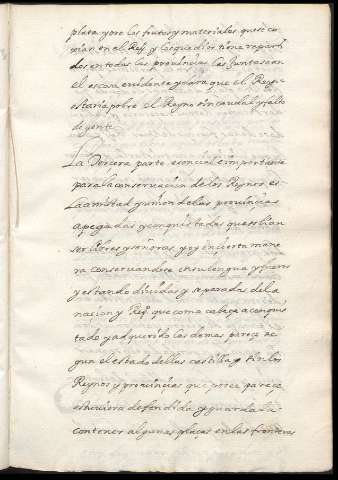 plata y oro los frutos y materiales que se co
xian en el Reyº y los que dios tiene reparti
dos en todas las provincias las Juntasean
el es cossa evidente y clara que el Rey
estaria pobre el Reyno sin caudal y falto
de gente.
La Tercera parte esencial e importante
para la conservacion de los Reynos es
la amistad y union de las provincias
apegadas y conquistadas que solian
ser libres y señoras, y oy en cierta mane
ra conservandose en su lengua y fueros
y estando dividas y separadas de la
nacion y Reyº que como cabeza a conquis
tado y adquirido los demas parece se
gun el estado dellas castilla en los
Reynos y provincias que posee parece
estuviera defendida y guardada
con tener algunas plazas en las fronteras